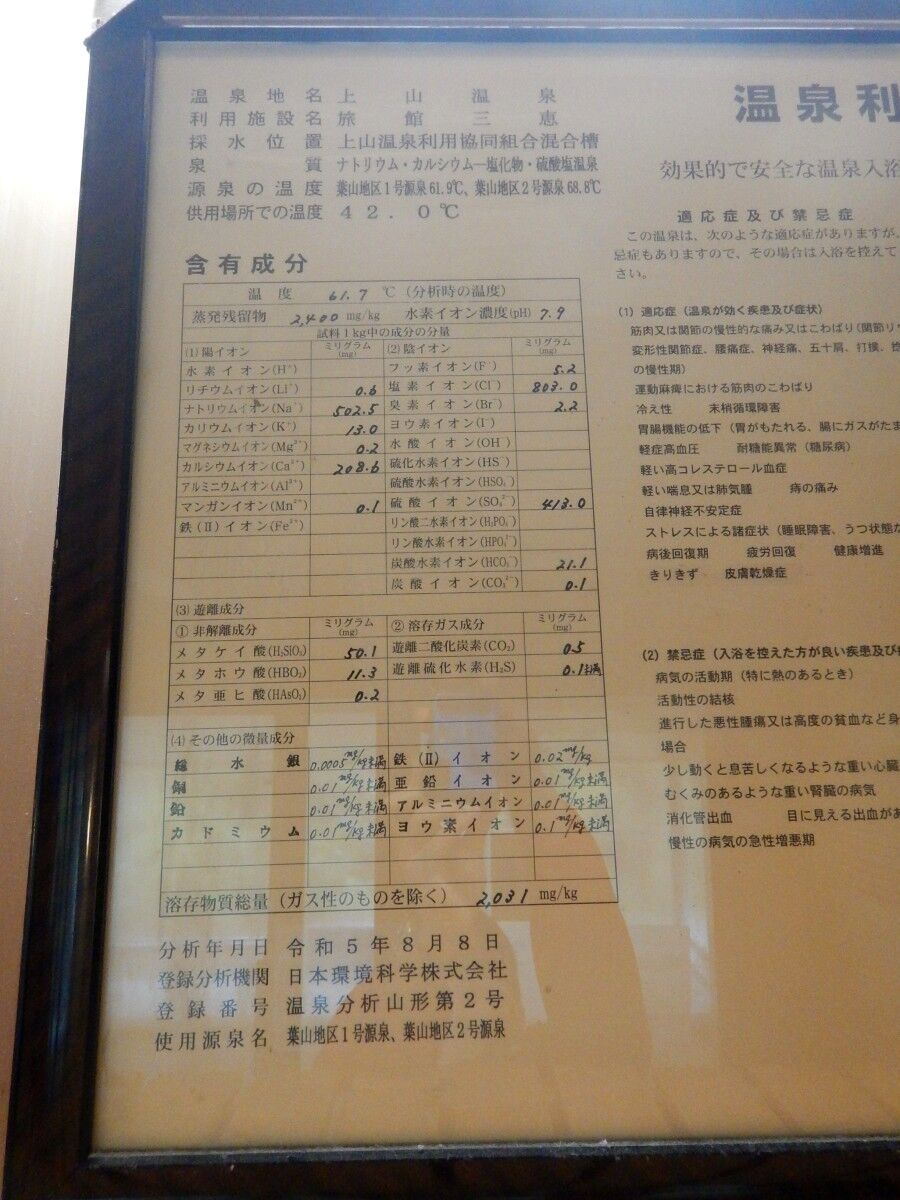 温泉地名 上山温泉
利用施設名 旅館三恵
採水位置 上山温泉利用協同組合混合槽
泉質 ナトリウム・カルシウム―塩化物・硫酸塩温泉
源泉の温度 葉山地区1号源泉61.9℃、葉山地区2号源泉68.8℃
供用場所での温度 42.0℃
含有成分
温度 61.7 ℃(分析時の温度)
蒸発残留物 2,400 mg/kg 水素イオン濃度(pH) 7.9
試料1kg中の成分の分量
(1)陽イオン ミリグラム(mg) (2)陰イオン ミリグラム(mg)
水素イオン(H⁺) フッ素イオン(F⁻) 5.2
リチウムイオン(Li⁺) 0.6 塩素イオン(Cl⁻) 803.0
ナトリウムイオン(Na⁺) 502.5 臭素イオン(Br⁻) 2.2
カリウムイオン(K⁺) 13.0 ヨウ素イオン(I⁻)
マグネシウムイオン(Mg²⁺) 0.2 水酸イオン(OH⁻)
カルシウムイオン(Ca²⁺) 208.6 硫化水素イオン(HS⁻)
アルミニウムイオン(Al³⁺) 硫酸水素イオン(HSO₄⁻)
マンガンイオン(Mn²⁺) 0.1 硫酸イオン(SO₄²⁻) 413.0
鉄(II)イオン(Fe²⁺) リン酸二水素イオン(H₂PO₄⁻)
リン酸水素イオン(HPO₄²⁻)
炭酸水素イオン(HCO₃⁻) 21.1
炭酸イオン(CO₃²⁻) 0.1
(3)遊離成分
①非解離成分 ミリグラム(mg) ②溶存ガス成分 ミリグラム(mg)
メタケイ酸(H₂SiO₃) 50.1 遊離二酸化炭素(CO₂) 0.5
メタホウ酸(HBO₂) 11.3 遊離硫化水素(H₂S) 0.1未満
メタ亜ヒ酸(HAsO₂) 0.2
(4)その他の微量成分
総水銀 0.0005mg/kg未満 鉄(II)イオン 0.02mg/kg
銅 0.01mg/kg未満 亜鉛イオン 0.01mg/kg未満
鉛 0.01mg/kg未満 アルミニウムイオン 0.01mg/kg未満
カドミウム 0.01mg/kg未満 ヨウ素イオン 0.1mg/kg未満
溶存物質総量(ガス性のものを除く) 2,031 mg/kg
分析年月日 令和5年8月8日
登録分析機関 日本環境科学株式会社
登録番号 温泉分析山形第2号
使用源泉名 葉山地区1号源泉、葉山地区2号源泉
温泉利
効果的で安全な温泉入浴
適応症及び禁忌症
この温泉は、次のような適応症がありますが、
忌症もありますので、その場合は入浴を控えて
さい。
(1)適応症(温泉が効く疾患及び症状)
筋肉又は関節の慢性的な痛み又はこわばり(関節リ
変形性関節症、腰痛症、神経痛、五十肩、打撲、捻
の慢性期)
運動麻痺における筋肉のこわばり
冷え性 末梢循環障害
胃腸機能の低下(胃がもたれる、腸にガスがたま
軽症高血圧 耐糖能異常(糖尿病)
軽い高コレステロール血症
軽い喘息又は肺気腫 痔の痛み
自律神経不安定症
ストレスによる諸症状(睡眠障害、うつ状態な
病後回復期 疲労回復 健康増進
きりきず 皮膚乾燥症
(2)禁忌症(入浴を控えた方が良い疾患及び
病気の活動期(特に熱のあるとき)
活動性の結核
進行した悪性腫瘍又は高度の貧血など身
場合
少し動くと息苦しくなるような重い心臓
むくみのあるような重い腎臓の病気
消化管出血 目に見える出血があ
慢性の病気の急性増悪期